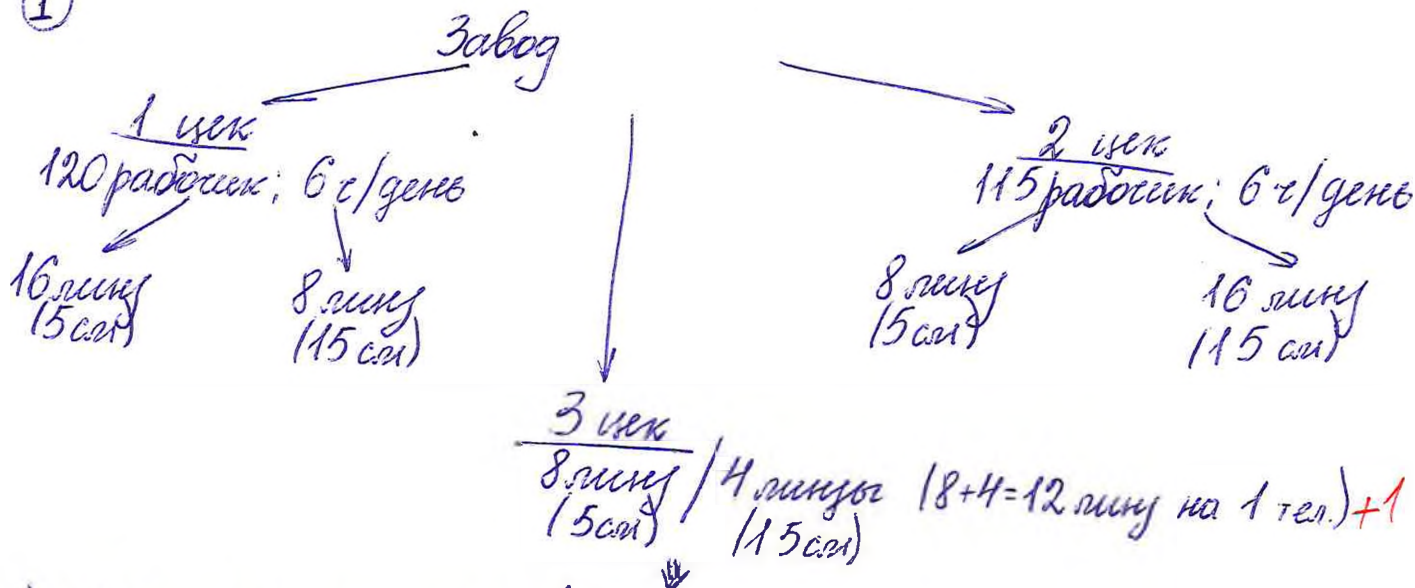 1
Завод
1 цех
120 рабочих; 6 ч/день
16 линз
(5см)
8 линз
(15 см)
2 цех
115 рабочих; 6 ч/день
8 линз
(5см)
16 линз
(15 см)
3 цех
8 линз / 4 линзы (8+4=12 линз на 1 тел.) +1
(5см) (15см)